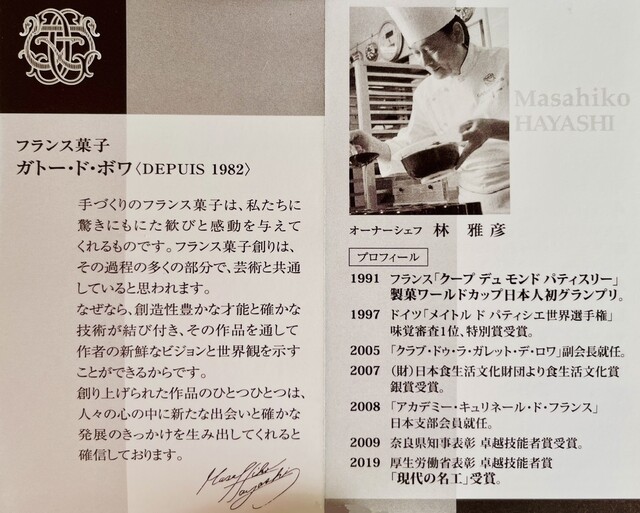 フランス菓子
ガトー・ド・ボワ〈DEPUIS 1982〉
手づくりのフランス菓子は、私たちに
驚きにもにた歓びと感動を与えて
くれるものです。フランス菓子創りは、
その過程の多くの部分で、芸術と共通
していると思われます。
なぜなら、創造性豊かな才能と確かな
技術が結び付き、その作品を通して
作者の新鮮なビジョンと世界観を示す
ことができるからです。
創り上げられた作品のひとつひとつは、
人々の心の中に新たな出会いと確かな
発展のきっかけを生み出してくれると
確信しております。
Masahiko
Hayashi
Masahiko
HAYASHI
オーナーシェフ 林 雅彦
プロフィール
1991 フランス「クープ デュ モンド パティスリー」
製菓ワールドカップ日本人初グランプリ。
1997 ドイツ「メイトル ド パティシエ世界選手権」
味覚審査1位、特別賞受賞。
2005 「クラブ・ドゥ・ラ・ガレット・デ・ロワ」副会長就任。
2007 (財)日本食生活文化財団より食生活文化賞
銀賞受賞。
2008 「アカデミー・キュリネール・ド・フランス」
日本支部会員就任。
2009 奈良県知事表彰 卓越技能者賞受賞。
2019 厚生労働省表彰 卓越技能者賞
「現代の名工」受賞。